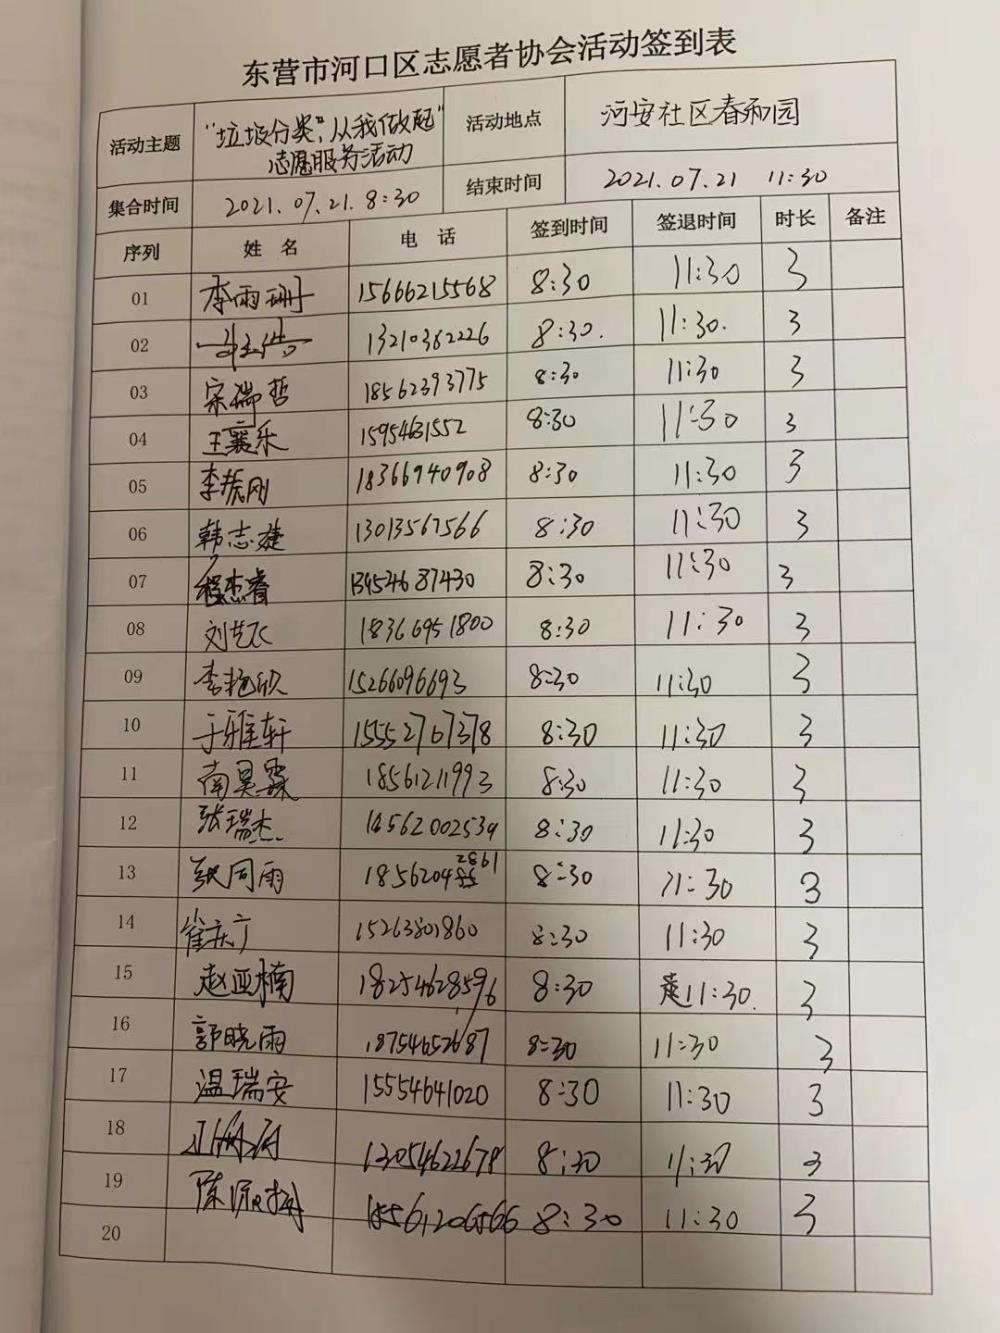 东营市河口区志愿者协会活动签到表
活动主题 "垃圾分类,从我做起" 志愿服务活动 活动地点 河安社区春和园
集合时间 2021.07.21.8:30 结束时间 2021.07.21 11:30
序列 姓名 电话 签到时间 签退时间 时长 备注
01 李雨珊 15666215568 8:30 11:30 3
02 13210382226 8:30. 11:30. 3
03 宋瑞哲 18562393775 8:30 11:30 3
04 王襄乐 15954631552 8:30 11:30 3
05 李振刚 18366940908 8:30 11:30 3
06 韩志婕 13013567566 8:30 11:30 3
07 程杰睿 8:30 11:30 3
08 刘艺飞 18366951800 8:30 11:30 3
09 李艳欣 15266096693 8:30 11:30 3
10 于雅轩 15552767378 8:30 11:30 3
11 南昊霖 18561211993 8:30 11:30 3
12 张瑞杰 8:30 11:30 3
13 张同雨 18562042861 8:30 11:30 3
14 崔庆广 15263801860 8:30 11:30 3
15 赵亚楠 18254628596 8:30 11:30. 3
16 郭晓雨 18754652687 8:30 11:30 3
17 温瑞安 15554641020 8:30 11:30 3
18 13054622678 8:30 11:30 3
19 陈 8:30 11:30 3
20